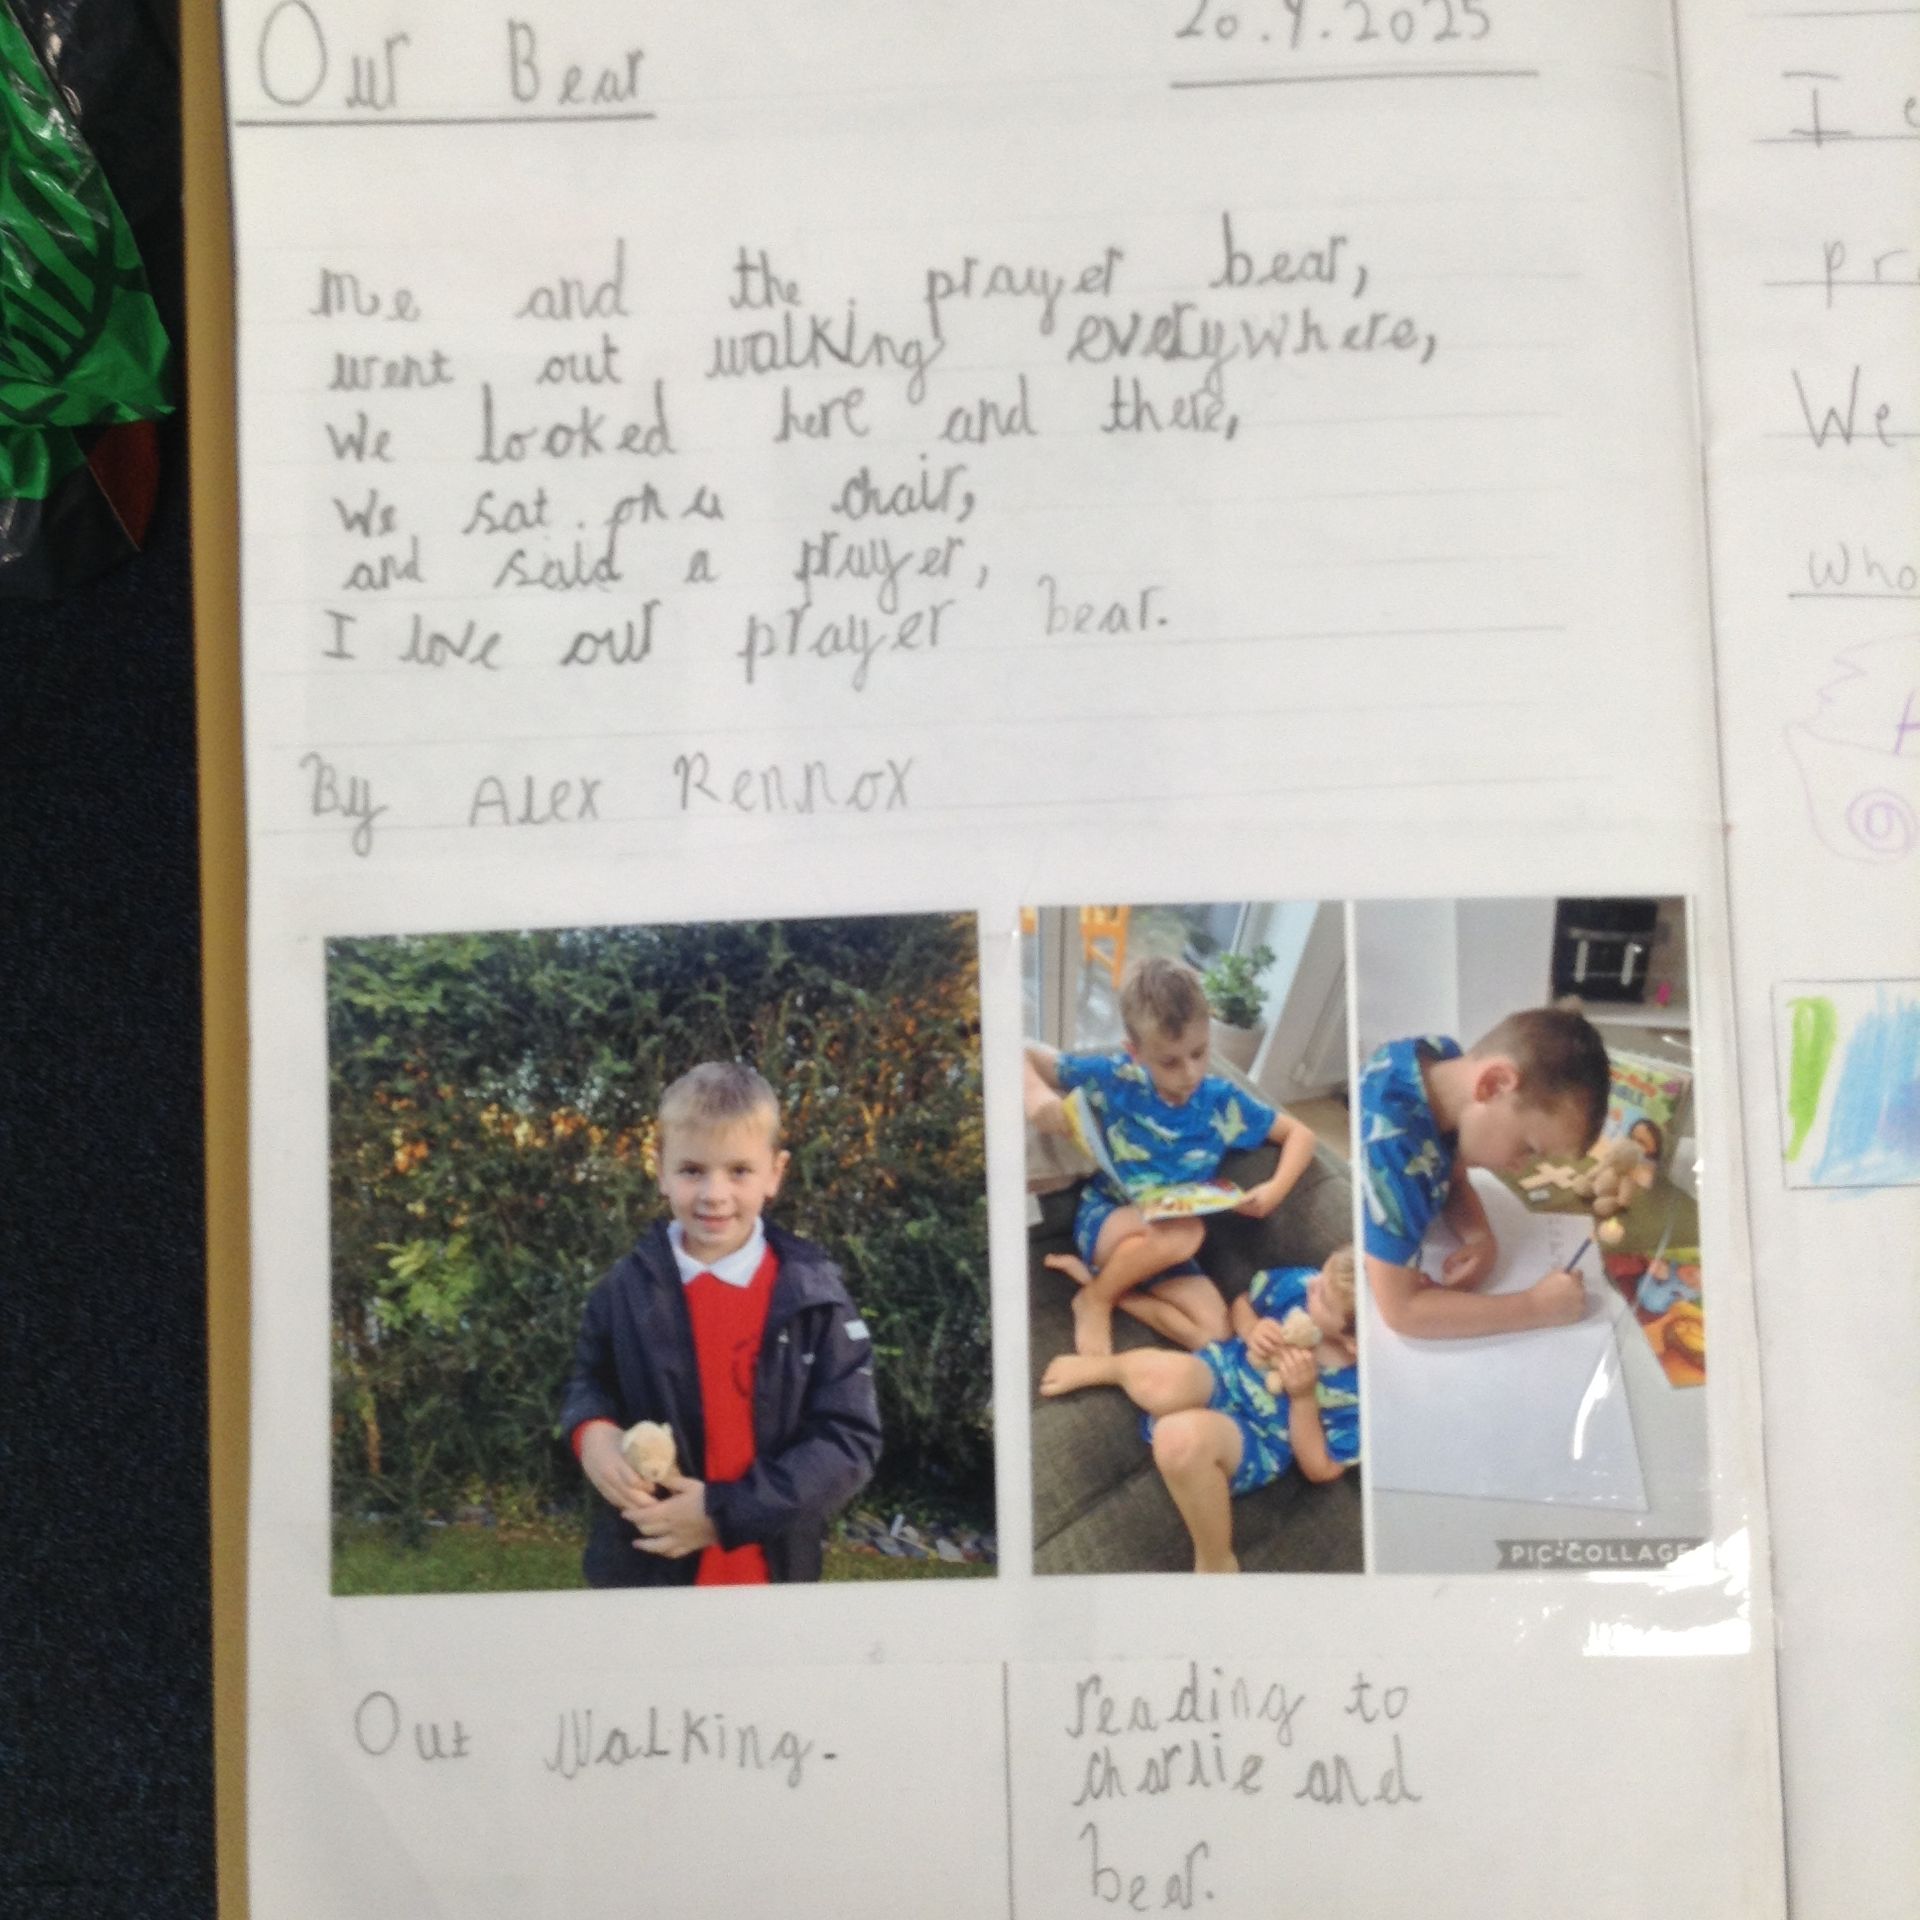 Our Bear
20.9.2025
me and the prayer bear,
went out walking everywhere,
we looked here and there,
we sat on a chair,
and said a prayer,
I love our prayer bear.
By Alex Rennox
PIC•COLLAGE
Out Walking.
reading to
charlie and
bear.
I
pr
We
who